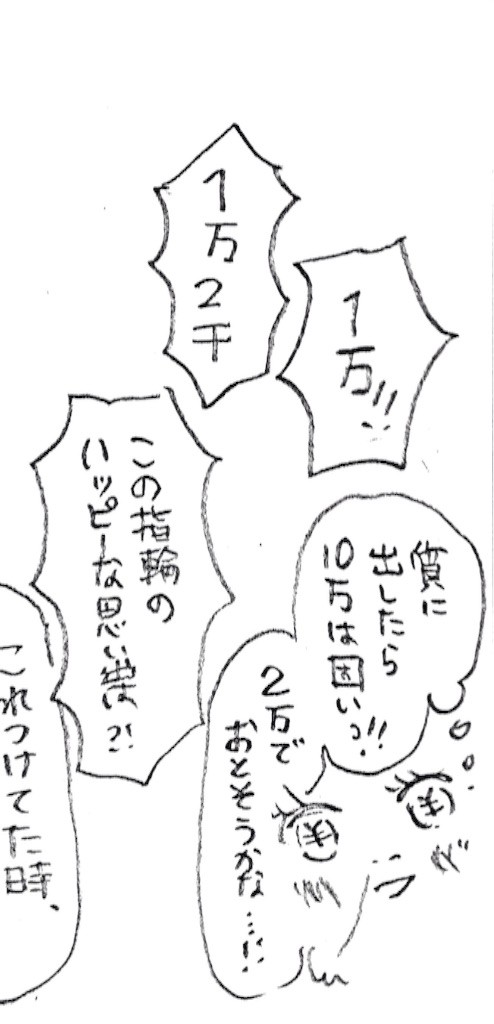 1万!!
1万2千
質に
出したら
10万は固いっ!!
2万で
おとそうかな…!!
この指輪の
ハッピーな思い出は?!
これつけてた時、